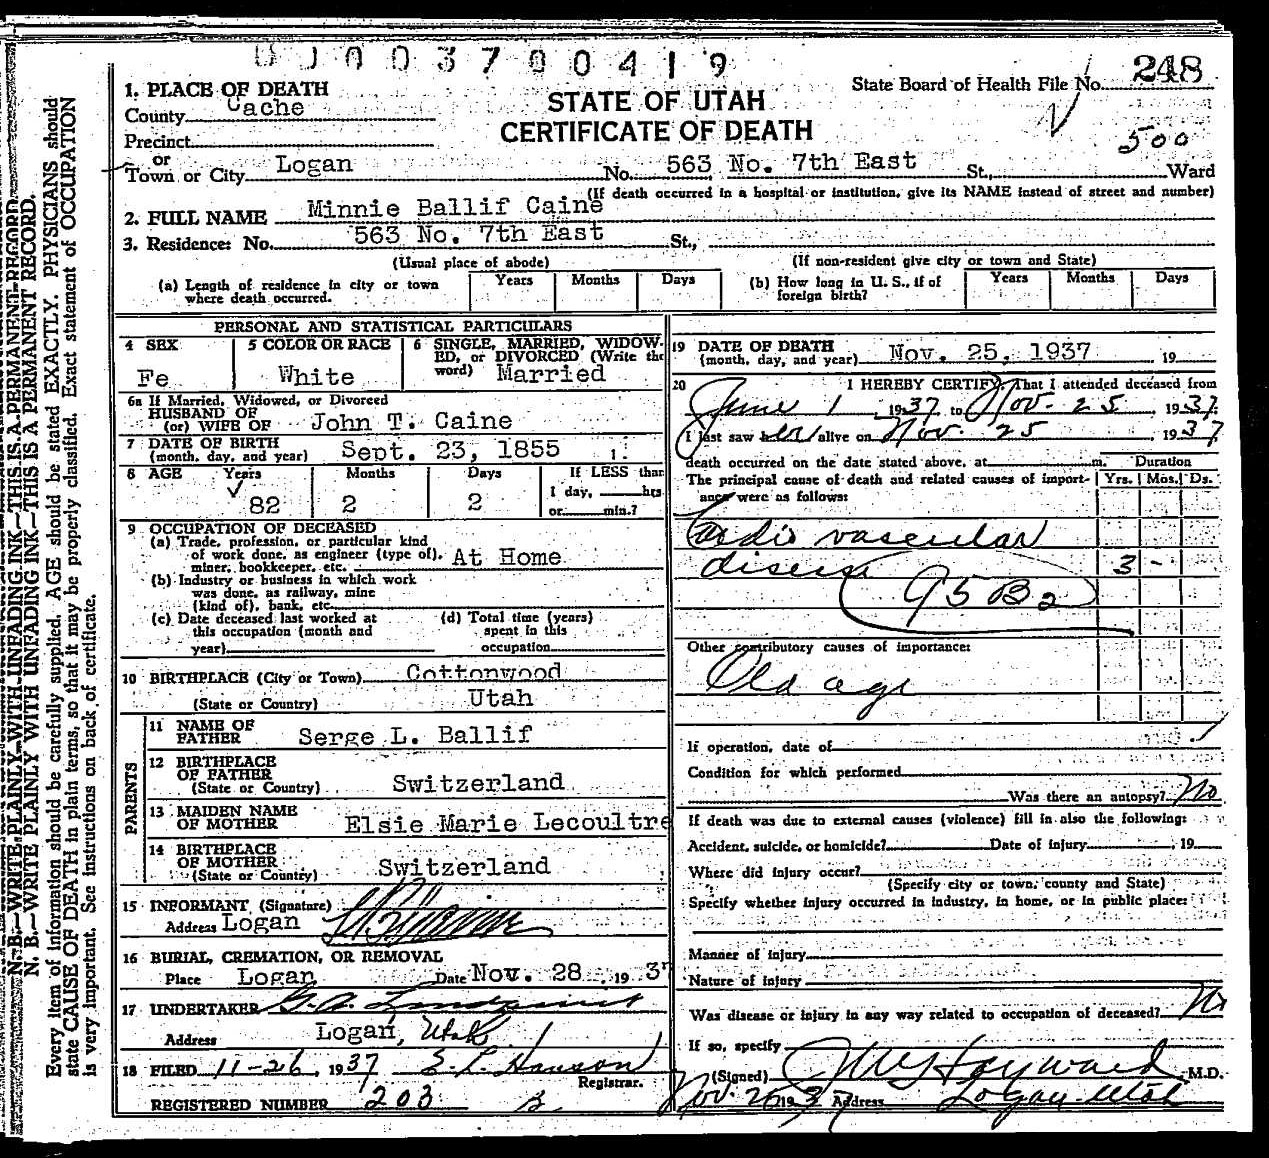 0 0 3 7 0 0 4 1 9
State Board of Health File No. 248
1. PLACE OF DEATH
County Cache
STATE OF UTAH
CERTIFICATE OF DEATH
500
Precinct
or
Town or City Logan No. 563 No. 7th East St., Ward
(If death occurred in a hospital or institution, give its NAME instead of street and number)
2. FULL NAME Minnie Ballif Caine
3. Residence: No. 563 No. 7th East St.,
(Usual place of abode) (If non-resident give city or town and State)
(a) Length of residence in city or town where death occurred. Years Months Days (b) How long in U. S., if of foreign birth? Years Months Days
PERSONAL AND STATISTICAL PARTICULARS
4 SEX 5 COLOR OR RACE 6 SINGLE, MARRIED, WIDOW-
ED, or DIVORCED (Write the
word) Married
Fe White
6a If Married, Widowed, or Divorced
HUSBAND OF
(or) WIFE OF John T. Caine
7 DATE OF BIRTH
(month, day, and year) Sept. 23, 1855
8 AGE Years Months Days If LESS than
1 day, hrs
or min.?
82 2 2
9 OCCUPATION OF DECEASED
(a) Trade, profession, or particular kind
of work done, as engineer (type of),
miner, bookkeeper, etc. At Home
(b) Industry or business in which work
was done, as railway, mine
(kind of), bank, etc.
(c) Date deceased last worked at
this occupation (month and
year)
(d) Total time (years)
spent in this
occupation
10 BIRTHPLACE (City or Town) Cottonwood
(State or Country) Utah
PARENTS
11 NAME OF
FATHER Serge L. Ballif
12 BIRTHPLACE
OF FATHER
(State or Country) Switzerland
13 MAIDEN NAME
OF MOTHER Elsie Marie Lecoultre
14 BIRTHPLACE
OF MOTHER
(State or Country) Switzerland
15 INFORMANT (Signature)
Address Logan
16 BURIAL, CREMATION, OR REMOVAL
Place Logan Date Nov. 28, 1937
17 UNDERTAKER G. A. Lindquist
Address Logan, Utah
18 FILED 11-26, 1937 E. L. Hanson
Registrar.
REGISTERED NUMBER 203
19 DATE OF DEATH
(month, day, and year) Nov. 25, 1937 19
20 I HEREBY CERTIFY, That I attended deceased from
June 1 1937 to Nov. 25 1937
I last saw her alive on Nov. 25 1937
death occurred on the date stated above, at m. Duration
The principal cause of death and related causes of import-
ance were as follows: Yrs. Mos. Ds.
Cardio vascular
disease 3 -
95B2
Other contributory causes of importance:
Old age
If operation, date of
Condition for which performed
Was there an autopsy? No
If death was due to external causes (violence) fill in also the following:
Accident, suicide, or homicide? Date of injury , 19
Where did injury occur?
(Specify city or town, county and State)
Specify whether injury occurred in industry, in home, or in public place:
Manner of injury
Nature of injury
Was disease or injury in any way related to occupation of deceased? No
If so, specify
(Signed) Hayward M.D.
Nov. 26 1937 Address Logan Utah
N. B.—WRITE PLAINLY WITH UNFADING INK—THIS IS A PERMANENT RECORD.
N. B.—WRITE PLAINLY WITH UNFADING INK—THIS IS A PERMANENT RECORD.
Every item of information should be carefully supplied. AGE should be stated EXACTLY. PHYSICIANS should
state CAUSE OF DEATH in plain terms, so that it may be properly classified. Exact statement of OCCUPATION
is very important. See instructions on back of certificate.